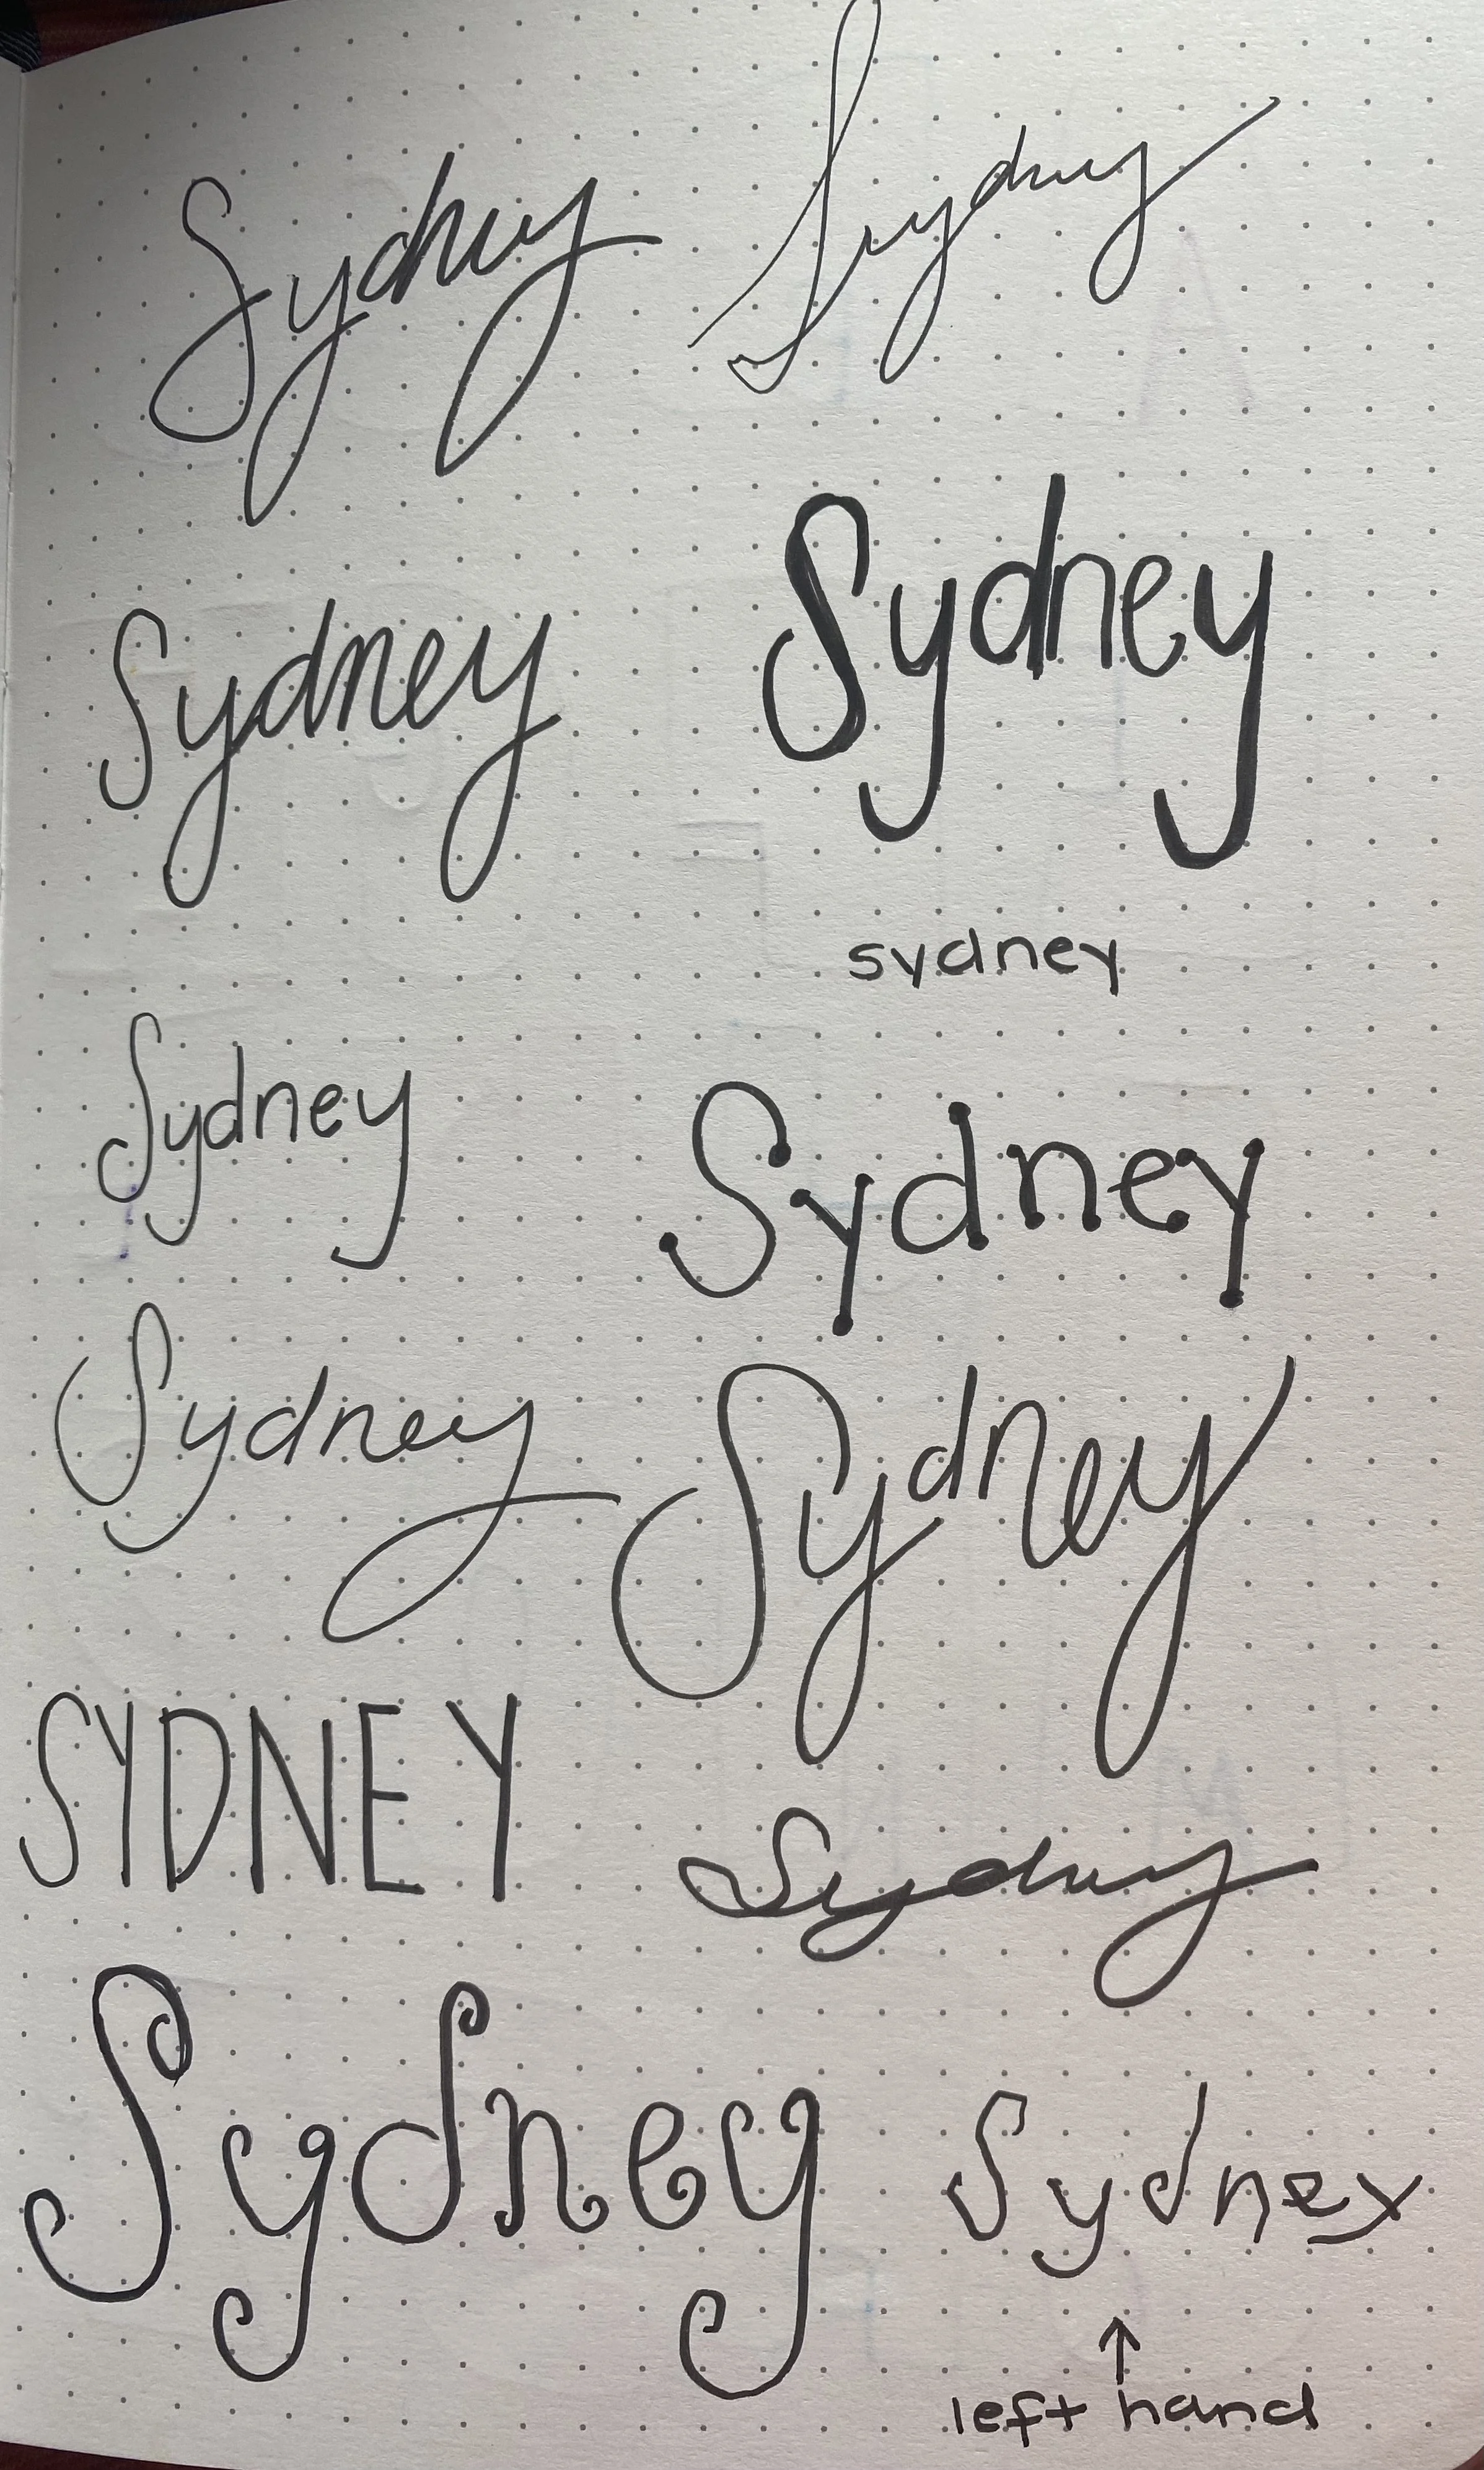 Sydney
Sydney
Sydney
Sydney
sydney
Sydney
Sydney
Sydney
Sydney
SYDNEY
Sydney
Sydney
Sydney
left hand